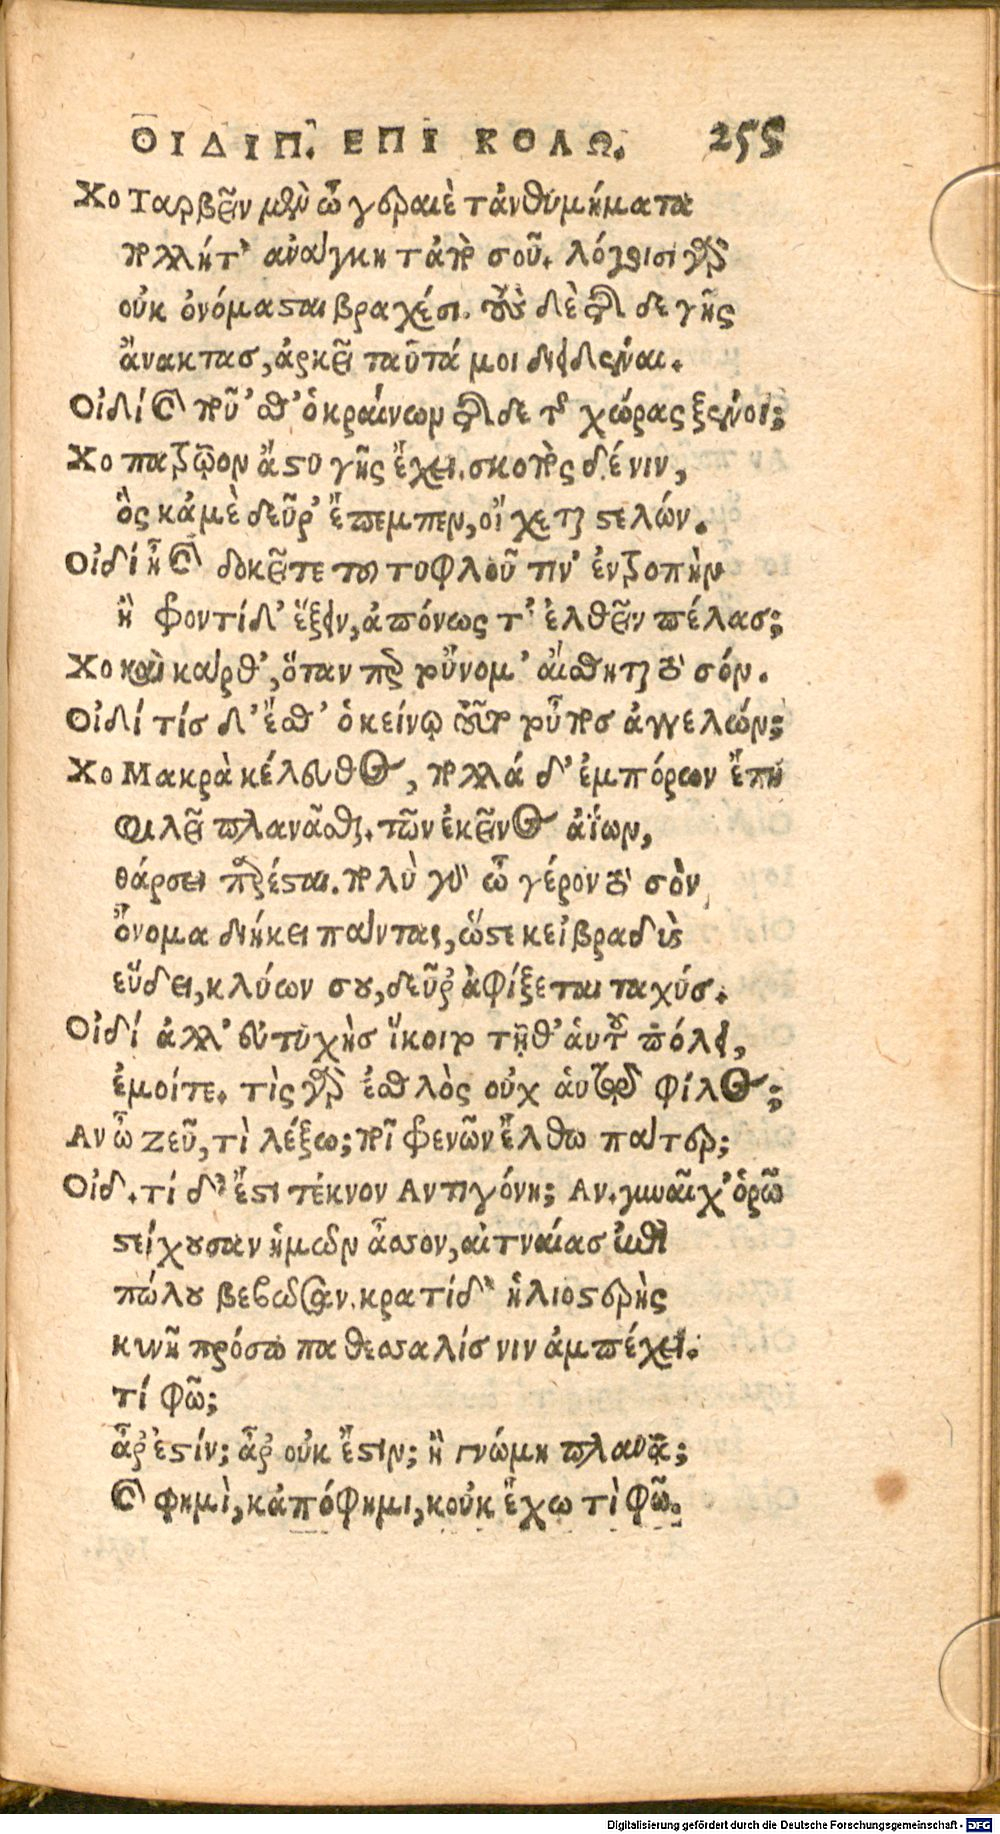 ΟΙΔΙΠ. ΕΠΙ ΚΟΛΩ. 255
Χο Ταρβεῖν μὲν ὦ γεραιὲ τἀνθυμήματα
πολλήτ’ ἀνάγκη τἀπὸ σοῦ. λόγοισι γὰρ
οὐκ ὀνόμασαι βραχέσι. τοὺς δὲ τῆσδε γῆς
ἄνακτασ, ἀρκεῖ ταῦτά μοι διειδέναι.
Οἰδί καὶ ποῦ’ σθ’ ὁ κραίνων τῆσδε τῆς χώρας ξένοι;
Χο πατρῷον ἄστυ γῆς ἔχει. σκοπὸς δέ νιν,
ὃς κἀμὲ δεῦρ’ ἔπεμπεν, οἴχεται στελών.
Οἰδί ἦ καὶ δοκεῖτε του τυφλοῦ τιν’ ἐντροπὴν
ἢ φροντίδ’ ἕξειν, ἀπόνως τ’ ἐλθεῖν πέλασ;
Χο καὶ κάρθ’, ὅταν περ τὔνομ’ αἴσθηται τὸ σόν.
Οἰδί τίσ δ’ ἔσθ’ ὁ κείνῳ τοῦτο τοὖποσ ἀγγελῶν;
Χο Μακρὰ κέλευθος, πολλά δ’ ἐμπόρων ἔπη
φιλεῖ πλανᾶσθαι. τῶν ἐκεῖνος ἀΐων,
θάρσει παρέσται. πολὺ γὰρ ὦ γέρον τὸ σὸν
ὄνομα διήκει πάντας, ὥστε κεἰ βραδὺς
εὕδει, κλύων σου, δεῦρ’ ἀφίξεται ταχύσ.
Οἰδί ἀλλ’ εὐτυχὴσ ἵκοιτο τῇθ’ αὑτοῦ πόλει,
ἐμοίτε. τὶς γὰρ ἐσθλὸς οὐχ αὑτῷ φίλος;
Αν ὦ Ζεῦ, τὶ λέξω; ποῖ φρενῶν ἔλθω πάτερ;
Οἰδ. τί δ’ ἔστι τέκνον Αντιγόνη; Αν. γυναῖχ’ ὁρῶ
στείχουσαν ἡμῶν ἆσσον, αἰτναίασ ἐπὶ
πώλου βεβῶσαν. κρατίδ’ ἡλιοστερὴς
κυνῆ πρόσωπα θεσσαλίσ νιν ἀμπέχει.
τί φῶ;
ἆρ’ ἐστίν; ἆρ’ οὐκ ἔστιν; ἢ γνώμη πλανᾷ;
καὶ φημὶ, κἀπόφημι, κοὐκ ἔχω τὶ φῶ.
Digitalisierung gefördert durch die Deutsche Forschungsgemeinschaft - DFG